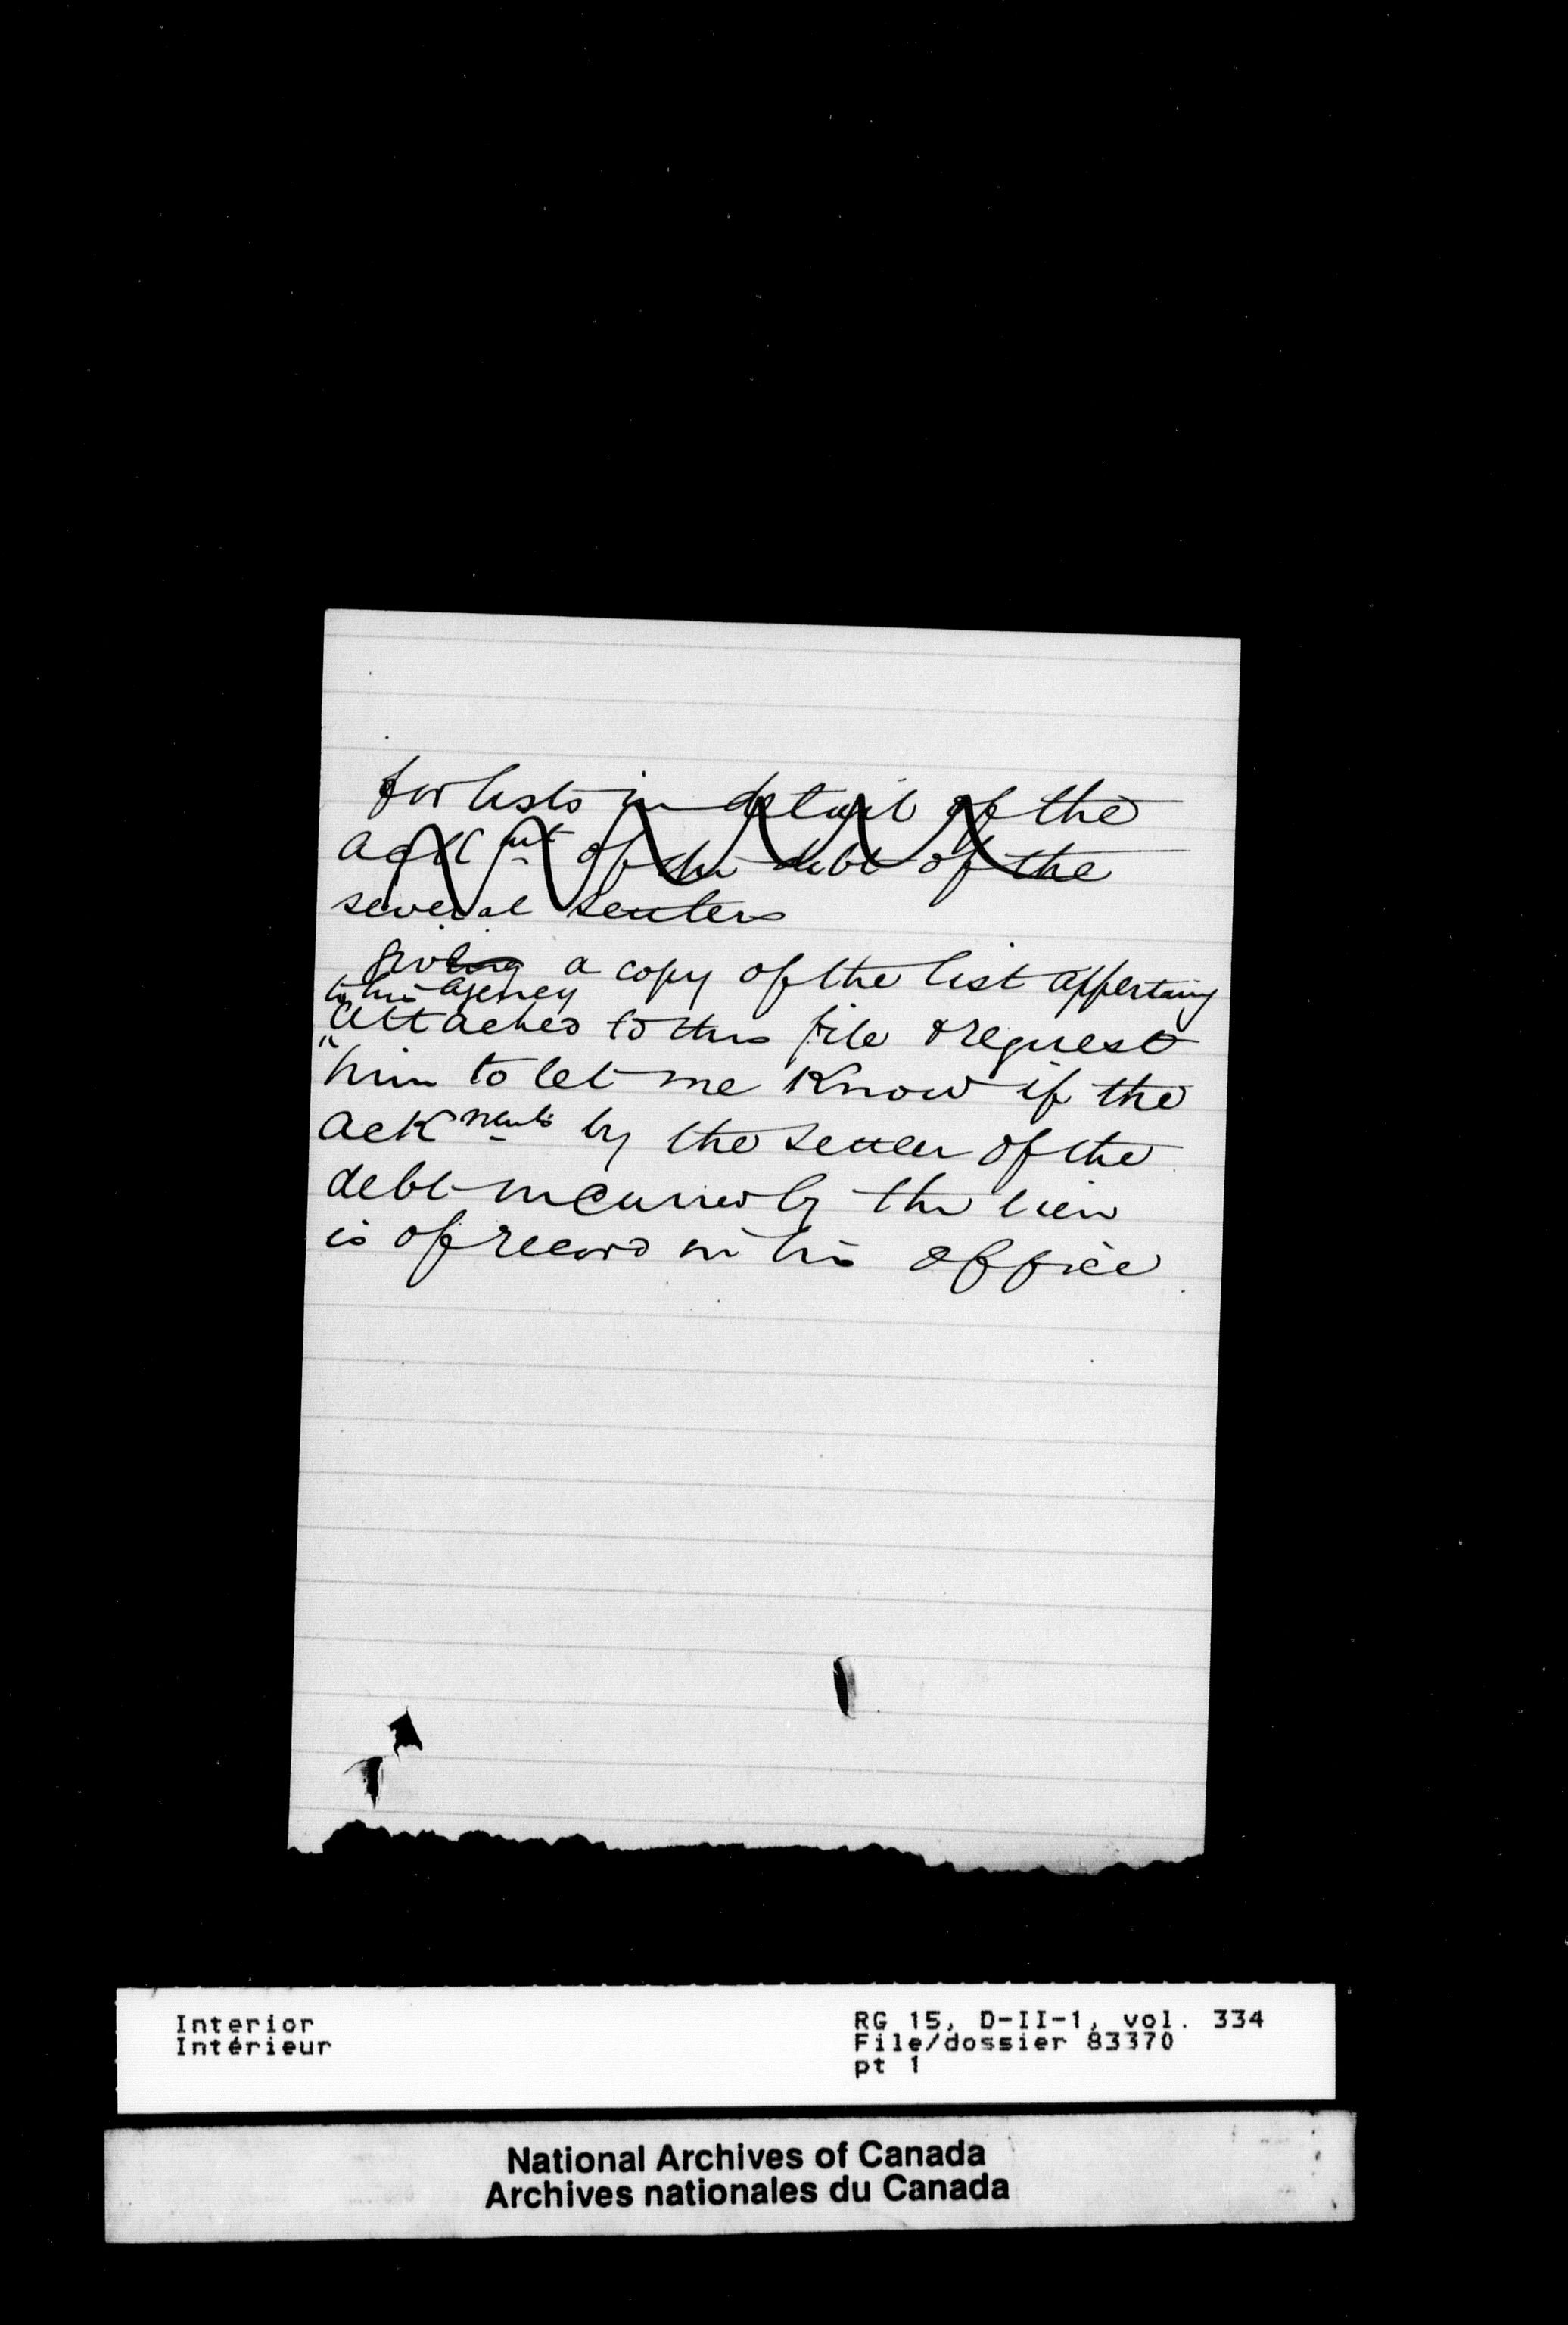 for lists in detail of the
ackmt of the debt of the
several settlers
Giving a copy of the list appertaing
to his agency
attached to this file & request
him to let me know if the
ackments by the settler of the
debt incurred by the lien
is of record in his office
Interior
Intérieur
RG 15, D-II-1, vol. 334
File/dossier 83370
pt 1
National Archives of Canada
Archives nationales du Canada